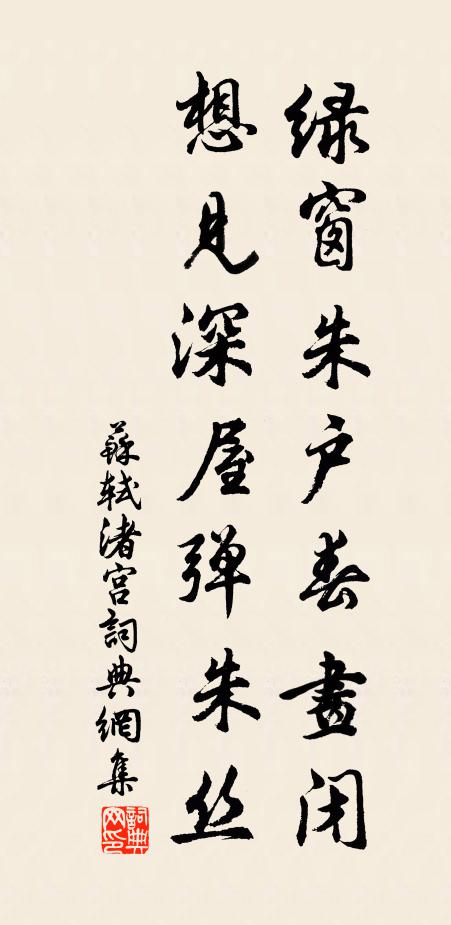 绿窗朱户春畫闭
想见深屋弹朱丝
蘇軾渚宫詞典網集
詞典网印